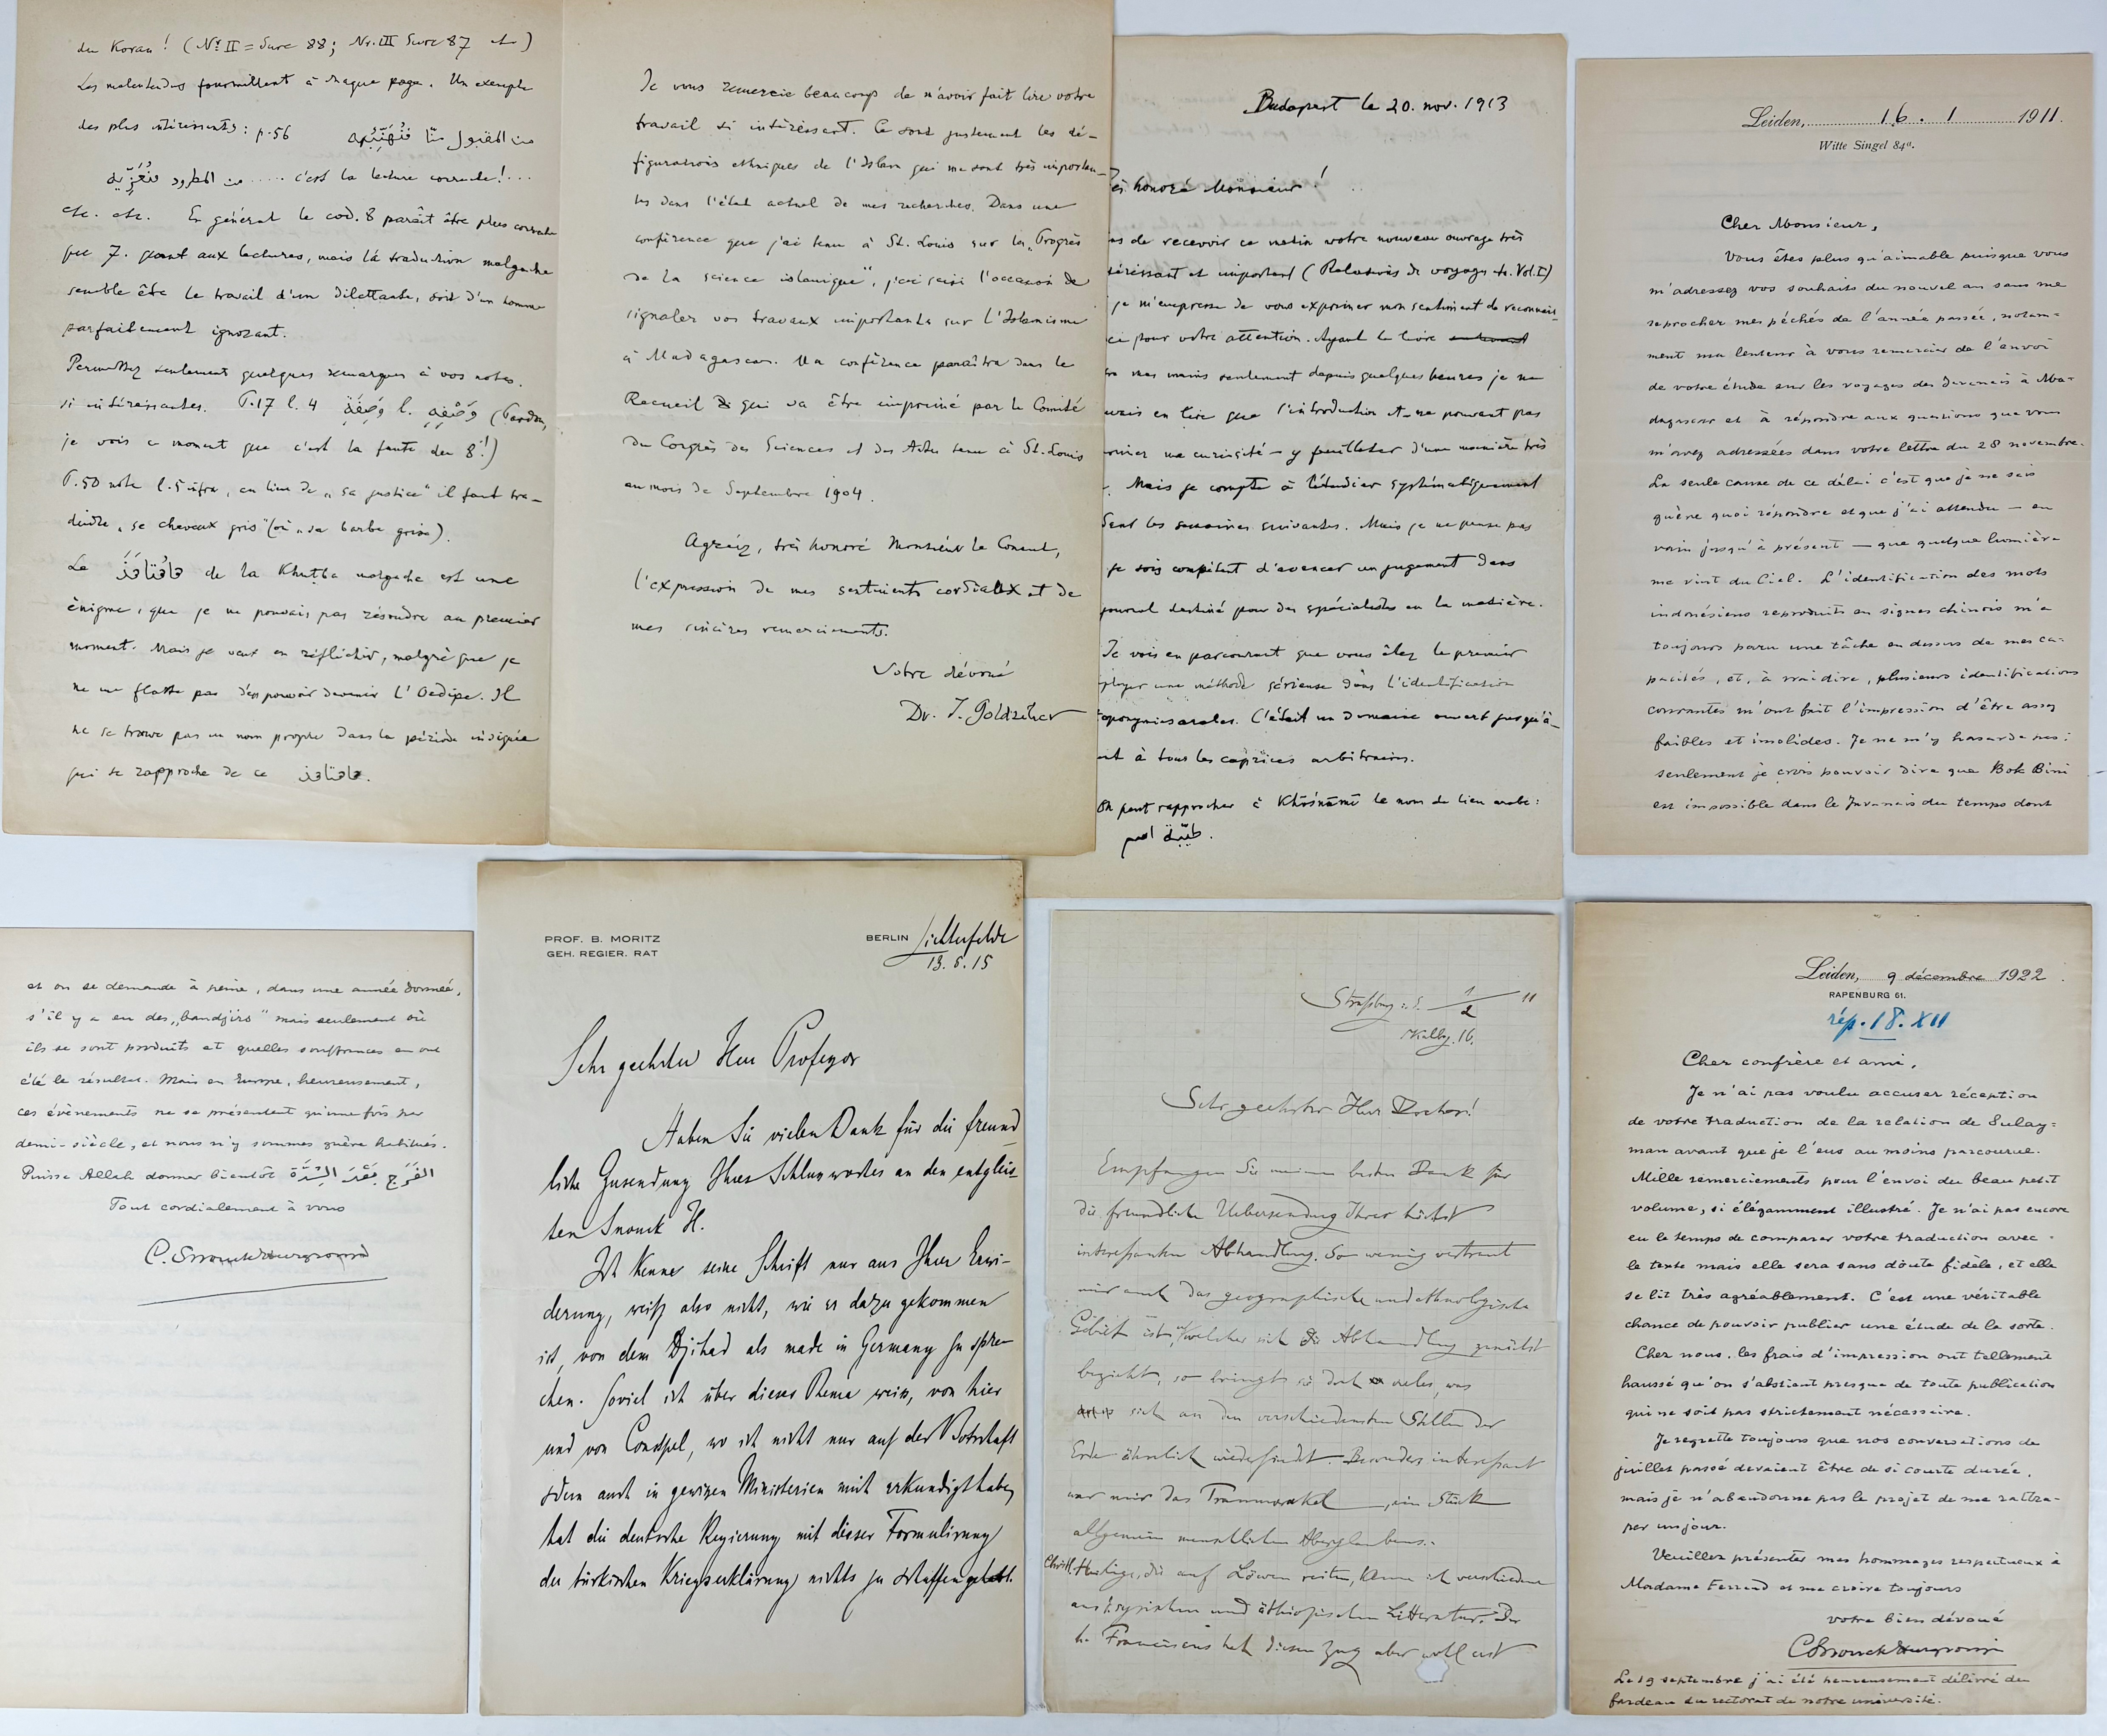 du Koran ! (Nr. II = Sure 88 ; Nr. III Sure 87 etc)
Les malentendus fourmillent à chaque page. Un exemple
des plus intéressants : p. 56 من المقبول منّا فنُهَنِّيه
من المطرود فنُعَزِّيه ..... c'est la lecture correcte!...
etc. etc. En général le cod. 8 paraît être plus correcte
que 7. quant aux lectures, mais la traduction malgache
semble être le travail d'un dilettante, soit d'un homme
parfaitement ignorant.
Permettez seulement quelques remarques à vos notes
si intéressantes. P. 17 l. 4 l. (Pardon,
je vois ce moment que c'est la faute du 8!)
P. 50 note l. 5 infra, au lieu de „sa justice" il faut tra-
duire „se cheveux gris" (ou „sa barbe grise).
Le de la Khutba malgache est une
énigme, que je ne pouvais pas résoudre au premier
moment. Mais je veux en réfléchir, malgré que je
ne me flatte pas d'en pouvoir devenir l'Oedipe. Il
ne se trouve pas un nom propre dans la période indiquée
qui se rapproche de ce
Je vous remercie beaucoup de m'avoir fait lire votre
travail si intéressant. Ce sont justement les dé-
figurations ethniques de l'Islam qui me sont très importan-
tes dans l'état actuel de mes recherches. Dans une
conférence que j'ai tenu à St. Louis sur les „Progrès
de la science islamique", j'ai saisi l'occasion de
signaler vos travaux importants sur l'Islamisme
à Madagascar. Ma conférence paraîtra dans le
Recueil qui va être imprimé par le Comité
du Congrès des Sciences et des Actes tenu à St. Louis
au mois de Septembre 1904.
Agréez, très honoré Monsieur le Consul,
l'expression de mes sentiments cordiaux et de
mes sincères remerciements.
Votre dévoué
Dr. I. Goldziher
Budapest le 20. nov. 1913
ès honoré Monsieur !
de recevoir ce matin votre nouveau ouvrage très
téressant et important (Relations de voyages etc. Vol. I)
je m'empresse de vous exprimer mon sentiment de reconnais-
ce pour votre attention. Ayant le livre
mes mains seulement depuis quelques heures je ne
en lire que l'introduction et – ne pouvant pas
ma curiosité – y feuilleter d'une manière très
Mais je compte à l'étudier systématiquement
les semaines suivantes. Mais je ne pense pas
je sois compétent d'avancer un jugement dans
journal destiné pour des spécialistes en la matière.
Je vois en parcourant que vous êtes le premier
ployer une méthode sérieuse dans l'identification
toponymies arabes. C'était un domaine ouvert jusqu'à-
nt à tous les caprices arbitraires.
On peut rapprocher à Khōšnāmī le nom de lieu arabe :
طيّبة اسم .
Leiden, 16. 1 1911.
Witte Singel 84a.
Cher Monsieur,
Vous êtes plus qu'aimable puisque vous
m'adressez vos souhaits du nouvel an sans me
reprocher mes péchés de l'année passée, notam-
ment ma lenteur à vous remercier de l'envoi
de votre étude sur les voyages des Javanais à Ma-
dagascar et à répondre aux questions que vous
m'avez adressées dans votre lettre du 28 novembre.
La seule cause de ce délai c'est que je ne sais
guère quoi répondre et que j'ai attendu — en
vain jusqu'à présent — que quelque lumière
me vint du Ciel. L'identification des mots
indonésiens reproduits en signes chinois m'a
toujours paru une tâche au dessus de mes ca-
pacités, et, à vrai dire, plusieurs identifications
courantes m'ont fait l'impression d'être assez
faibles et insolides. Je ne m'y hasarde pas ;
seulement je crois pouvoir dire que Bok Bini
est impossible dans le Javanais du temps dont
et on se demande à peine, dans une année donnée,
s'il y a eu des „bandjirs" mais seulement où
ils se sont produits et quelles souffrances en ont
été le résultat. Mais en Europe, heureusement,
ces évènements ne se présentent qu'une fois par
demi-siècle, et nous n'y sommes guère habitués.
Puisse Allah donner bientôt الفَرَج بَعْدَ الشِّدَّة
Tout cordialement à vous
C. Snouck Hurgronje
PROF. B. MORITZ
GEH. REGIER. RAT
BERLIN Lichterfelde
13. 6. 15
Sehr geehrter Herr Professor
Haben Sie vielen Dank für die freund
liche Zusendung Ihres Schlusswortes an den entgleis-
ten Snouck H.
Ich kenne seine Schrift nur aus Ihrer Erwi-
derung, weiß also nicht, wie er dazu gekommen
ist, von dem Djihad als made in Germany zu spre-
chen. Soviel ich über dieses Thema weiss, von hier
und von Constpel, wo ich nicht nur auf der Botschaft
sdern auch in gewissen Ministerien mich erkundigt habe,
hat die deutsche Regierung mit dieser Formulirung
der türkischen Kriegserklärung nichts zu schaffen gehabt.
Straßburg i. E. 1/2 11
Kalbsg. 16.
Sehr geehrter Herr Doctor!
Empfangen Sie meinen besten Dank für
die freundliche Uebersendung Ihrer höchst
interessanten Abhandlung. So wenig vertraut
mir auch das geographische und ethnologische
Gebiet ist, auf welches sich die Abhandlung zunächst
bezieht, so bringt sie doch vieles, was
sich an den verschiedensten Stellen der
Erde ähnlich wiederfindet. Besonders interessant
war mir das Traumorakel, ein Stück
allgemein menschlichen Aberglaubens.
Christl. Heilige, die auf Löwen reiten, kenne ich verschiedene
aus syrischer und äthiopischer Litteratur. Der
h. Franciscus hat diesen Zug aber wohl erst
Leiden, 9 décembre 1922.
RAPENBURG 61.
rép. 18. XII
Cher confrère et ami,
Je n'ai pas voulu accuser réception
de votre traduction de la relation de Sulay-
man avant que je l'eus au moins parcourue.
Mille remerciements pour l'envoi du beau petit
volume, si élégamment illustré. Je n'ai pas encore
eu le temps de comparer votre traduction avec
le texte mais elle sera sans doute fidèle, et elle
se lit très agréablement. C'est une véritable
chance de pouvoir publier une étude de la sorte.
Chez nous, les frais d'impression ont tellement
haussé qu'on s'abstient presque de toute publication
qui ne soit pas strictement nécessaire.
Je regrette toujours que nos conversations de
juillet passé devaient être de si courte durée,
mais je n'abandonne pas le projet de me rattra-
per un jour.
Veuillez présenter mes hommages respectueux à
Madame Ferrand et me croire toujours
votre bien dévoué
C. Snouck Hurgronje
Le 19 septembre j'ai été heureusement délivré du
fardeau du rectorat de notre université.